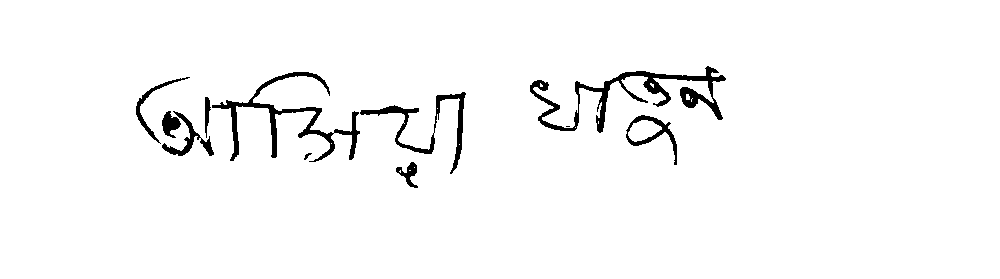 আসিয়া খাতুন